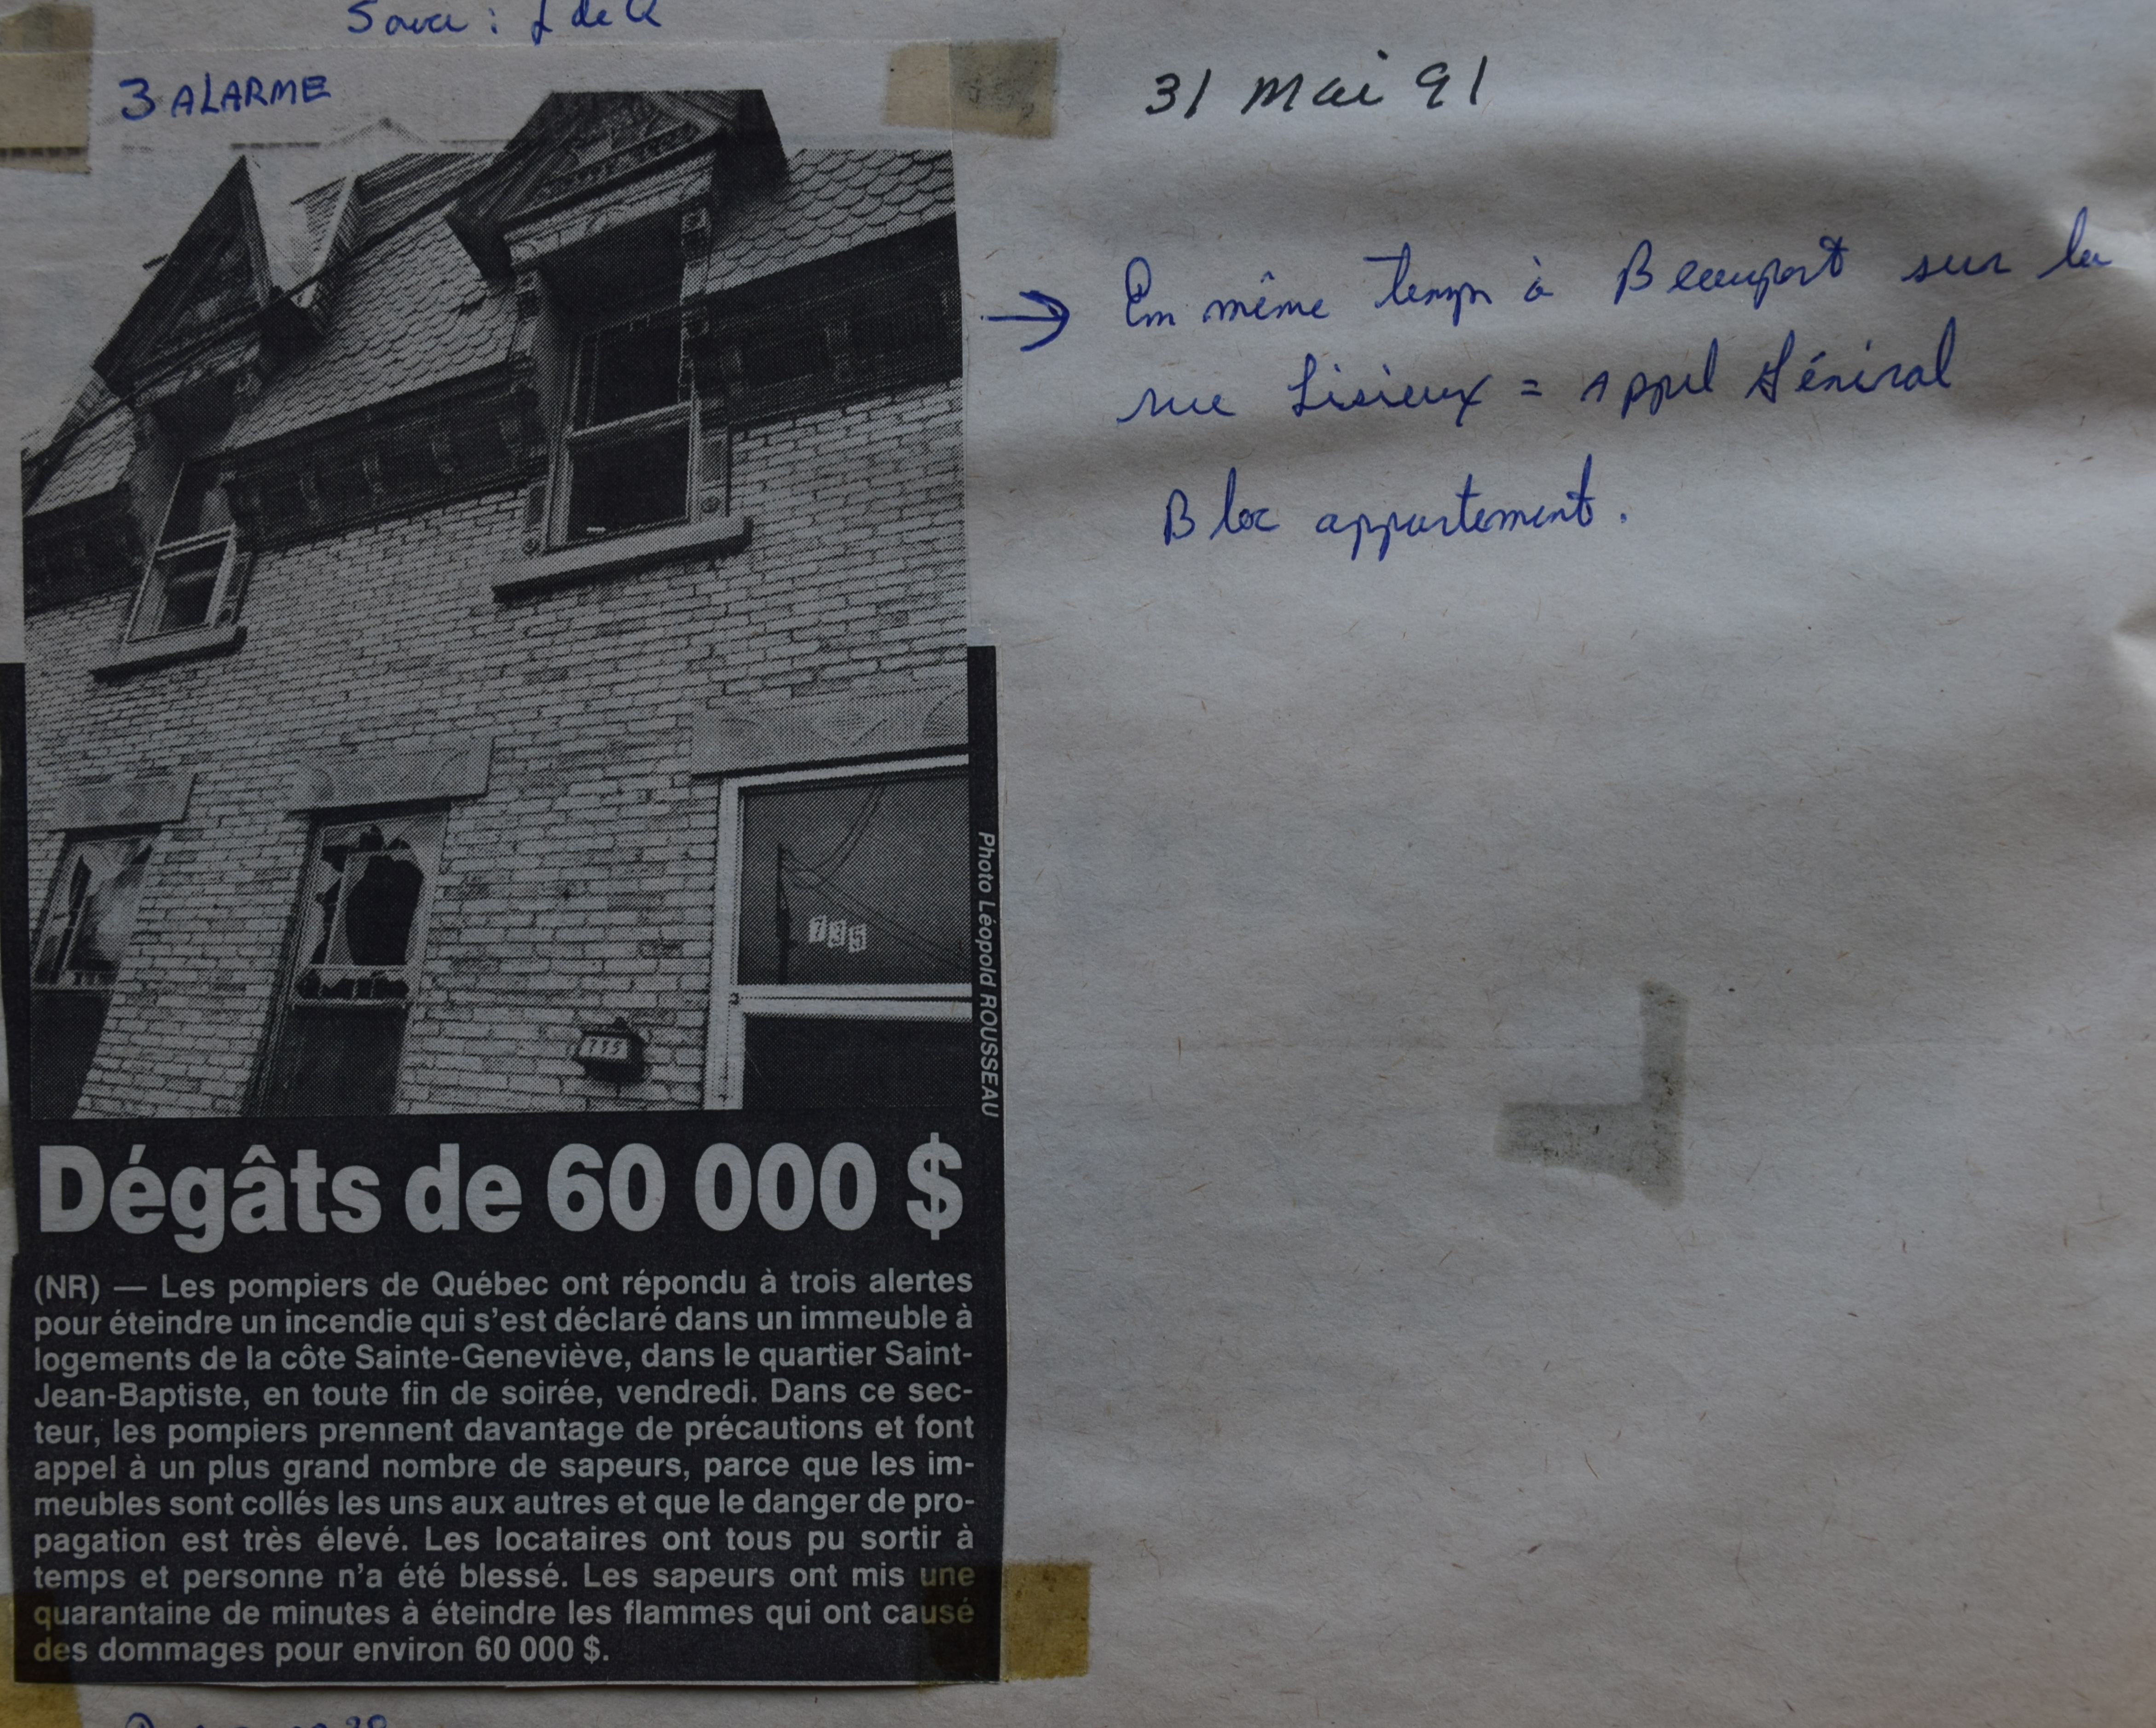 Source : J de Q
3 ALARME
31 Mai 91
→ En même temps à Beauport sur la
rue Lisieux = Appel Général
Bloc appartement.
735
735
Photo Léopold ROUSSEAU
Dégâts de 60 000 $
(NR) — Les pompiers de Québec ont répondu à trois alertes
pour éteindre un incendie qui s'est déclaré dans un immeuble à
logements de la côte Sainte-Geneviève, dans le quartier Saint-
Jean-Baptiste, en toute fin de soirée, vendredi. Dans ce sec-
teur, les pompiers prennent davantage de précautions et font
appel à un plus grand nombre de sapeurs, parce que les im-
meubles sont collés les uns aux autres et que le danger de pro-
pagation est très élevé. Les locataires ont tous pu sortir à
temps et personne n'a été blessé. Les sapeurs ont mis une
quarantaine de minutes à éteindre les flammes qui ont causé
des dommages pour environ 60 000 $.